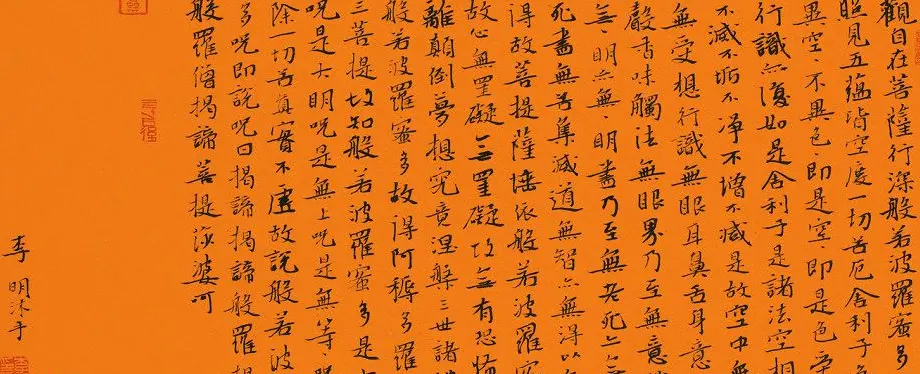 觀自在菩薩行深般若波羅蜜多
照見五蘊皆空度一切苦厄舍利子
異空、不異色、即是空即是色受
行識亦復如是舍利子是諸法空相
不滅不垢不淨不增不減是故空中無
無受想行識無眼耳鼻舌身意
聲香味觸法無眼界乃至無意
無、明亦無、明盡乃至無老死亦
死盡無苦集滅道無智亦無得以
得故菩提薩埵依般若波羅蜜
故心無罣礙無罣礙故無有恐怖
離顛倒夢想究竟涅槃三世諸
般若波羅蜜多故得阿耨多羅
三菩提故知般若波羅蜜多是
咒是大明咒是無上咒是無等、咒
除一切苦真實不虛故說般若波
多咒即說咒曰揭諦揭諦般羅揭
般羅僧揭諦菩提莎婆呵
李明沐手